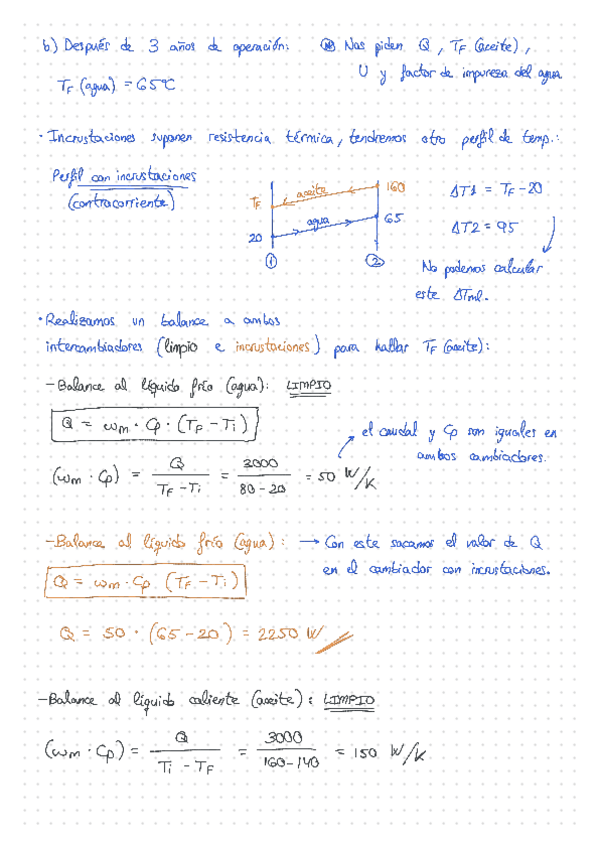 b) Después de 3 años de operación: Nos piden Q, TF (aceite),
U y factor de impureza del agua
TF (agua) = 65ºC
· Incrustaciones suponen resistencia térmica, tendremos otro perfil de temp.:
Perfil con incrustaciones
(contracorriente)
TF aceite 160
20 agua 65
1 2
ΔT1 = TF - 20
ΔT2 = 95
No podemos calcular
este ΔTml.
· Realizamos un balance a ambos
intercambiadores (limpio e incrustaciones) para hallar TF (aceite):
- Balance al líquido frío (agua): LIMPIO
Q = ωm · Cp · (TF - Ti)
el caudal y Cp son iguales en
ambos cambiadores.
(ωm · Cp) = Q / (TF - Ti) = 3000 / (80 - 20) = 50 W/K
- Balance al líquido frío (agua): → Con este sacamos el valor de Q
en el cambiador con incrustaciones.
Q = ωm · Cp (TF - Ti)
Q = 50 · (65 - 20) = 2250 W
- Balance al líquido caliente (aceite): LIMPIO
(ωm · Cp) = Q / (Ti - TF) = 3000 / (160 - 140) = 150 W/K